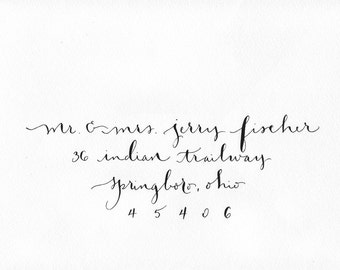 mr. & mrs. jerry fischer
36 indian trailway
springboro, ohio
4 5 4 0 6